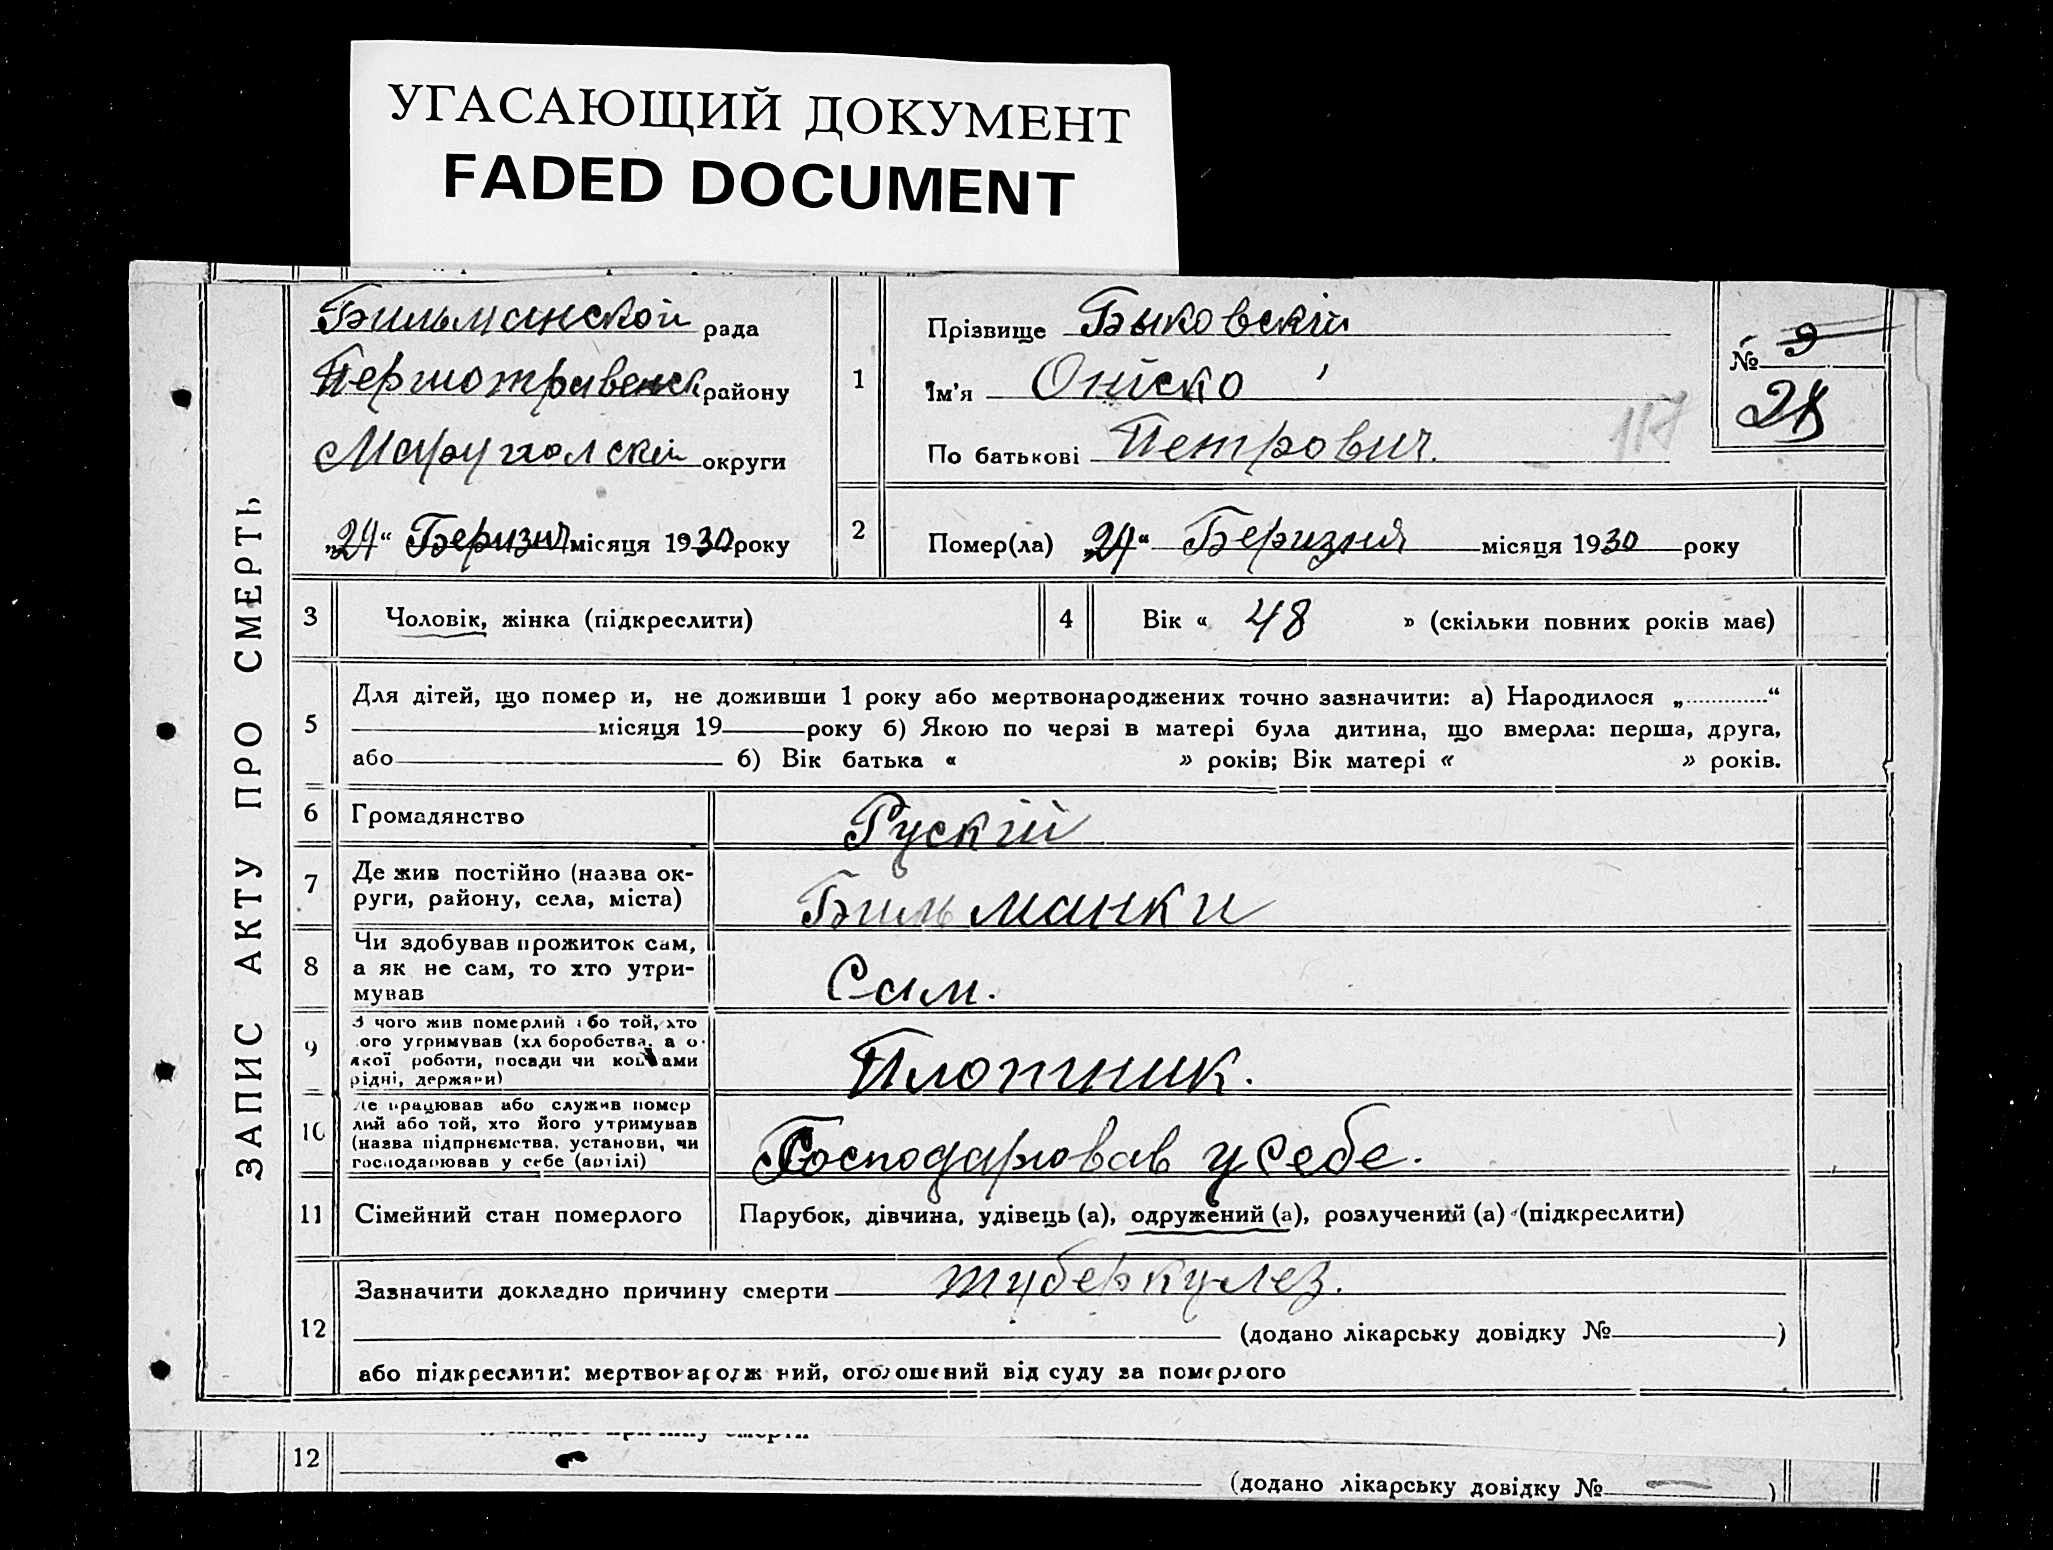 УГАСАЮЩИЙ ДОКУМЕНТ
FADED DOCUMENT
ЗАПИС АКТУ ПРО СМЕРТЬ
Бильманской рада
Першотравенск району
округи
„24“ Беризня місяця 1930 року
1
Прізвище Быковскій
Ім'я Онiско
По батькові Петрович.
117
№ 9
28
2
Помер(ла) „24“ Беризня місяця 1930 року
3
Чоловік, жінка (підкреслити)
4
Вік « 48 » (скільки повних років має)
5
Для дітей, що помер и, не доживши 1 року або мертвонароджених точно зазначити: а) Народилося „.............“
місяця 19 року б) Якою по черзі в матері була дитина, що вмерла: перша, друга,
або б) Вік батька « » років; Вік матері « » років.
6
Громадянство
Рускій
7
Де жив постійно (назва ок-
руги, району, села, міста)
Бильманки
8
Чи здобував прожиток сам,
а як не сам, то хто утри-
мував
Сам.
9
З чого жив померлий або той, хто
ого утримував (хл боробства, а о
якої роботи, посади чи коштами
рідні, держави)
Плотник.
10
Де працював або служив помер
лий або той, хто його утримував
(назва підприємства, установи, чи
господарював у себе (артілі)
Господарював у себе.
11
Сімейний стан померлого
Парубок, дівчина, удівець (а), одружений (а), розлучений (а) (підкреслити)
12
Зазначити докладно причину смерти туберкулез.
(додано лікарську довідку № )
або підкреслити: мертвонародж ний, оголошений від суду за померлого
12
(додано лікарську довідку № )